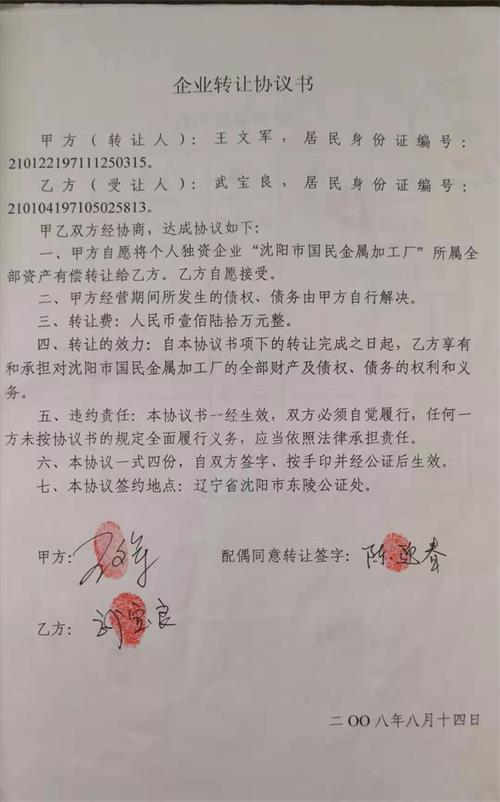 企业转让协议书
甲方（转让人）：王文军，居民身份证编号：
210122197111250315。
乙方（受让人）：武宝良，居民身份证编号：
210104197105025813。
甲乙双方经协商，达成协议如下：
一、甲方自愿将个人独资企业“沈阳市国民金属加工厂”所属全
部资产有偿转让给乙方。乙方自愿接受。
二、甲方经营期间所发生的债权、债务由甲方自行解决。
三、转让费：人民币壹佰陆拾万元整。
四、转让的效力：自本协议书项下的转让完成之日起，乙方享有
和承担对沈阳市国民金属加工厂的全部财产及债权、债务的权利和义
务。
五、违约责任：本协议书一经生效，双方必须自觉履行，任何一
方未按协议书的规定全面履行义务，应当依照法律承担责任。
六、本协议一式四份，自双方签字、按手印并经公证后生效。
七、本协议签约地点：辽宁省沈阳市东陵公证处。
甲方：王文军 配偶同意转让签字：陈迎春
乙方：武宝良
二〇〇八年八月十四日